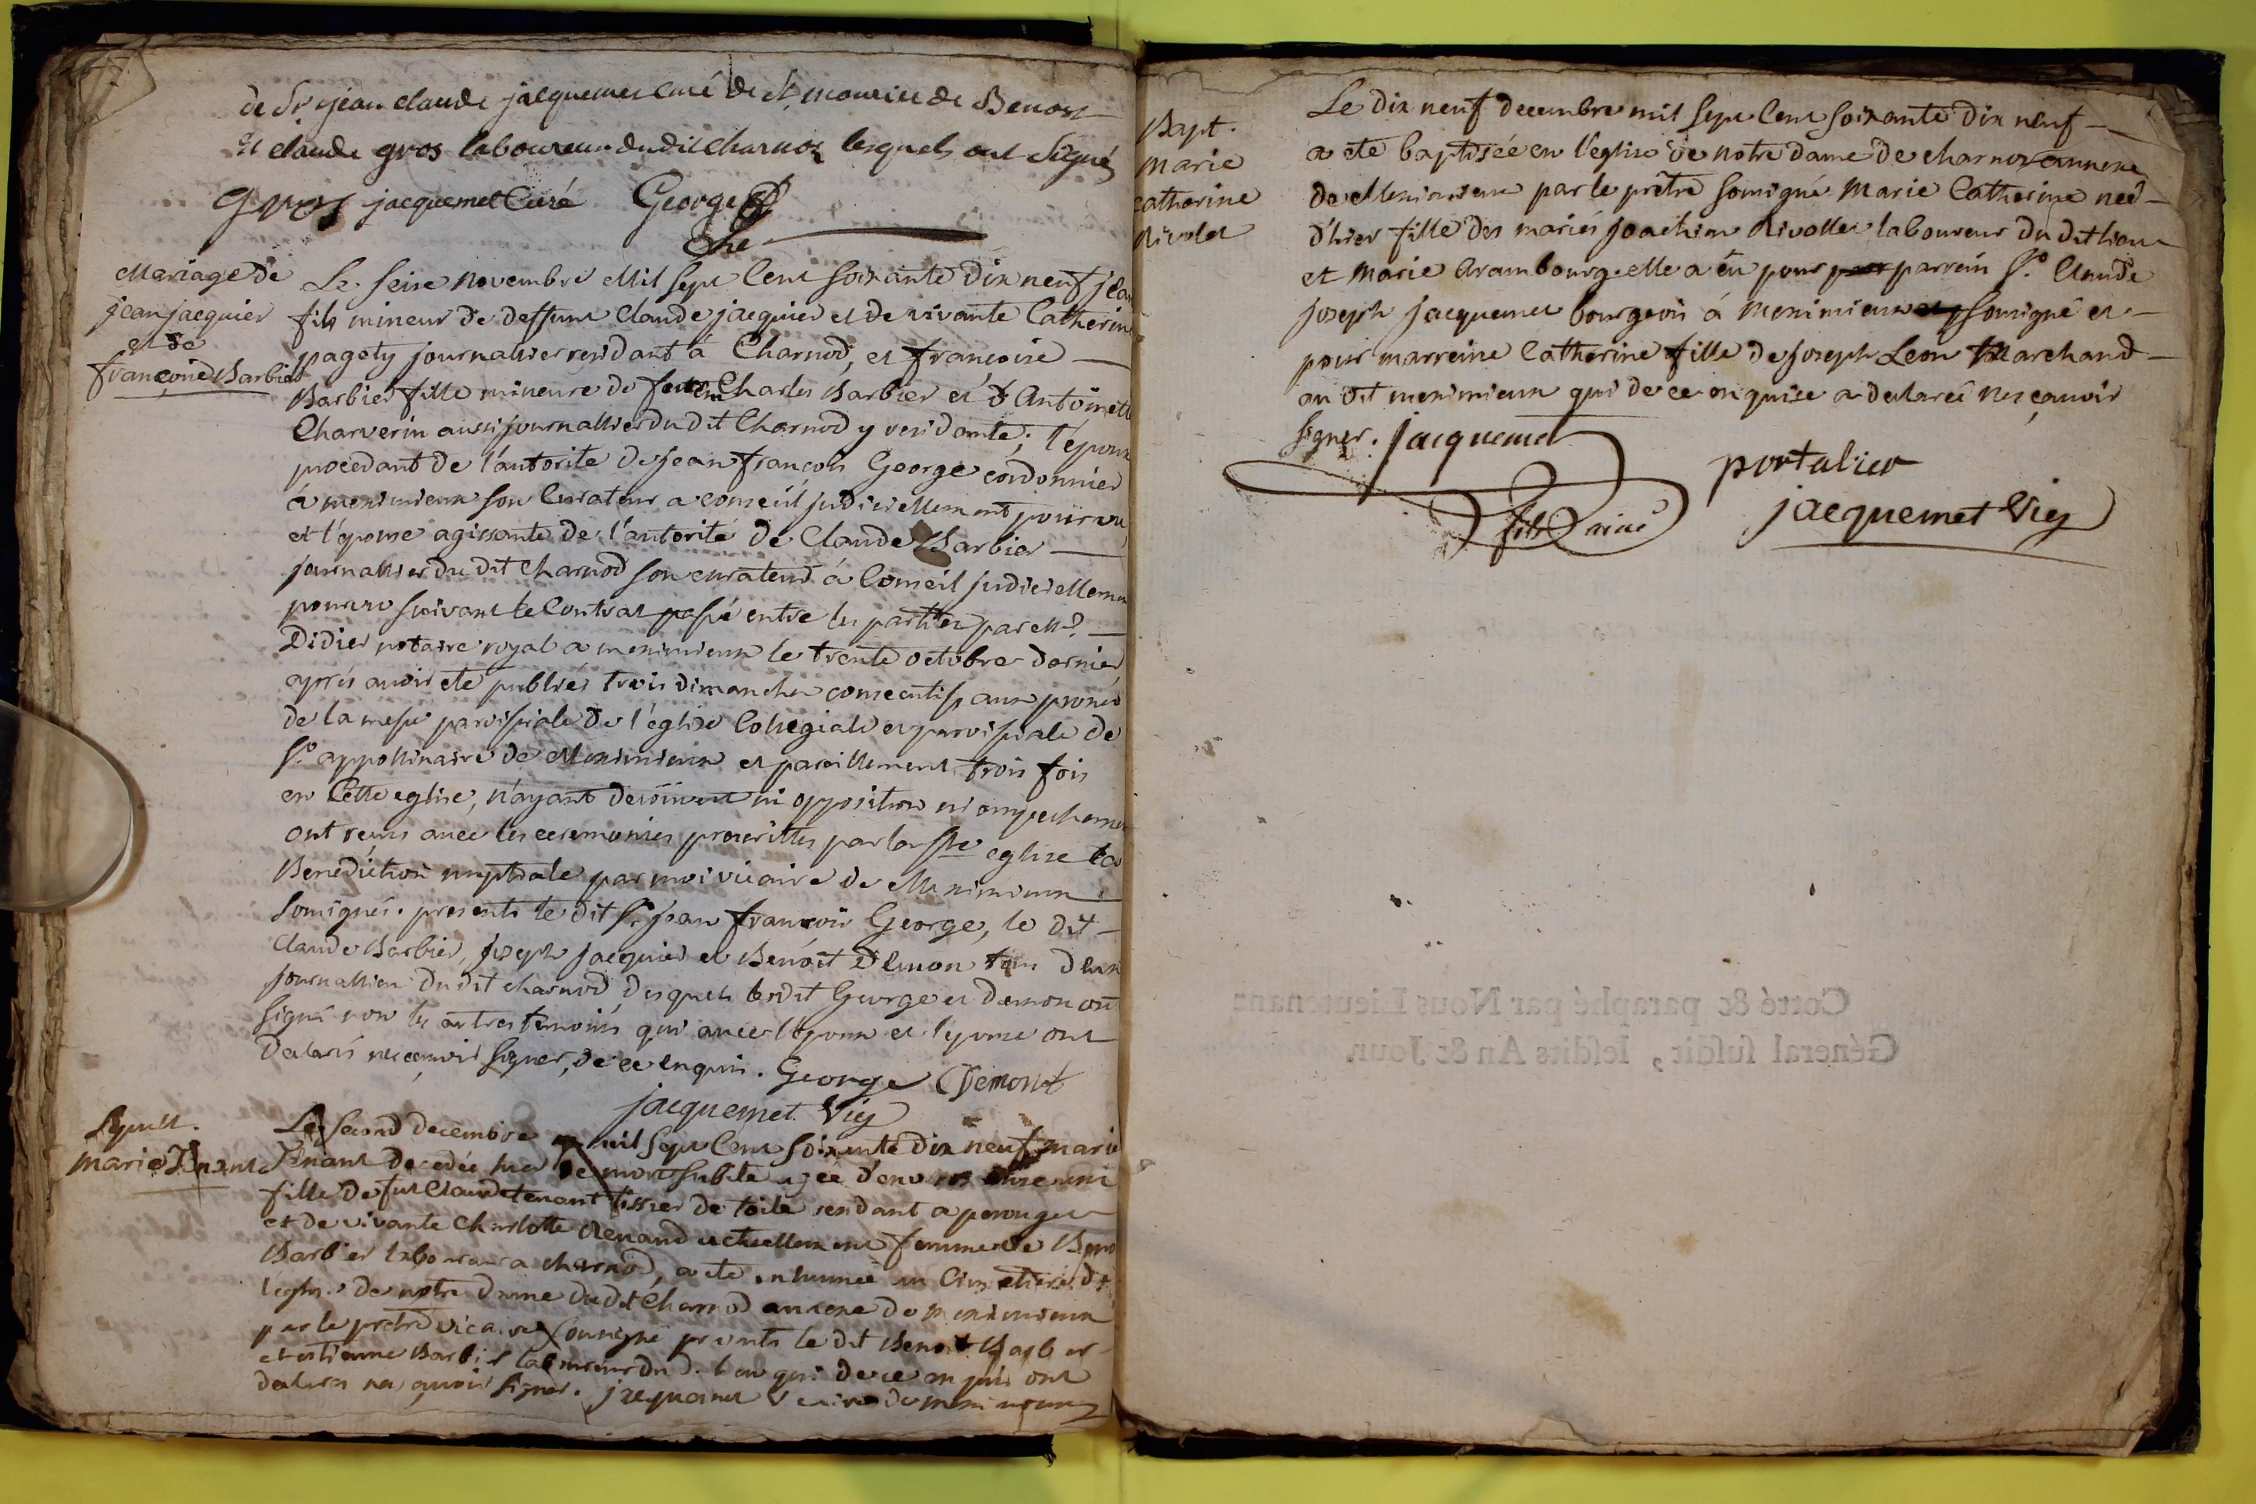 de Sr jean claude jacquemet curé de St mourice de Benost
et claude gros laboureur dudit charnoz lesquels ont signé
gros jacquemet Curé George
Mariage de
jean jacquier
et de
françoise Barbier
Le seise novembre Mil sept Cent soixante dix neuf jean
fils mineur de deffunt Claude jacquier et de vivante Catherine
pagety journallier residant à Charnod, et françoise
Barbier fille mineure de feu Charles Barbier et d'Antoinette
Charverin aussi journallier du dit Charnod y residante; l'époux
procedant de l'autorité de jean françois George cordonnier
à meximieux son Curateur a conseil judiciellement pourvu
et l'épouse agissante de l'autorité de Claude Barbier
journallier du dit Charnod son curateur à Conseil judiciellement
pourvu suivant le Contrat passé entre les parties par Me
Didier notaire royal a meximieux le trente octobre dernier
après avoir été publiés trois dimanches consecutifs aux prones
de la messe paroissiale de l'église Collegiale et paroissiale de
St appollinaire de Meximieux et pareillement trois fois
en Cette eglise, n'ayant decouvert ni opposition ni empechement
ont reçus avec les ceremonies prescrittes par la Ste eglise la
Benediction nuptiale par moi vicaire de Meximieux
soussigné. presents le dit Sr jean françois George, le dit
Claude Barbier, joseph jacquier et Benoît Demon tous deux
journalliers du dit charnod desquels ledit George et demon ont
signé non les autres temoins qui avec l'epoux et l'epouse ont
declarés ne sçavoir signer, de ce enquis. George Demont
jacquemet Vic
Sepult.
marie Tenant
Le second decembre mil sept Cent soixante dix neuf marie
Tenant decedée hier de mort subite agée d'environ onze ans
fille de fut Claude tenant tissier de toile residant a perouges
et de vivante Charlotte Renand actuellement femme de Benoit
Barbier laboureur a charnod, a été inhumée au Cimetiere de
l'eglise de notre Dame du dit Charnod annexe de meximieux
par le pretre vicaire soussigné presents le dit Benoit Barbier
et estienne Barbier laboureur du d. lieu qui de ce enquis ont
declarés ne sçavoir signer. jacquemet Vicaire de meximieux
Bapt.
Marie
Catherine
Rivolet
Le Dix neuf decembre mil sept Cent soixante Dix neuf
a été baptisée en l'eglise de notre dame de charnoz annexe
de Meximieux par le prêtre soussigné Marie Catherine née
d'hier fille des mariés joachim Rivollet laboureur du dit lieu
et Marie Arambourg. elle a eu pour parrein Sr Claude
joseph jacquemet bourgeois à Meximieux soussigné et
pour marreine Catherine fille de joseph Leon Marchand
au dit meximieux qui de ce enquise a declarée ne sçavoir
signer. jacquemet
fils ainé
portalier
jacquemet Vic
Cotté & paraphé par Nous Lieutenant
Général susdit, lesdits An & Jour.